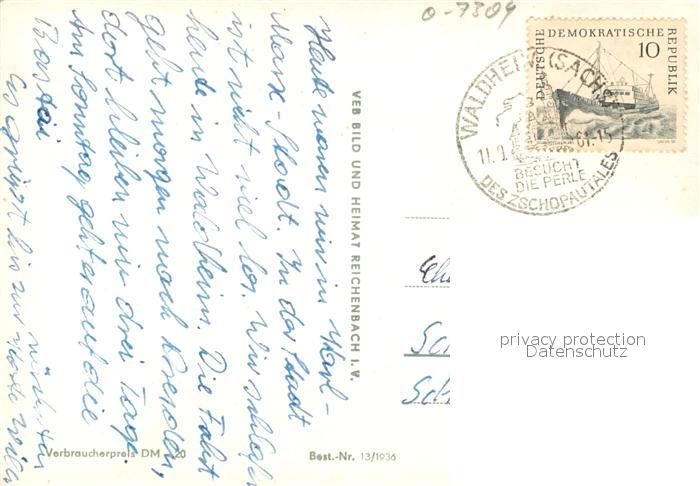 o-7304
DEUTSCHE DEMOKRATISCHE REPUBLIK
10
WALDHEIM (SACHS)
11.9. 61.-15
BESUCHT
DIE PERLE
DES ZSCHOPAUTALES
Heute waren wir in Karl-
Marx-Stadt. In der Stadt
ist nicht viel los. Wir schlafen
heute in Waldheim. Die Fahrt
geht morgen nach Dresden,
dort bleiben wir drei Tage.
Am Sonntag geht es auf die
Bastei
Es grüsst bis zur
VEB BILD UND HEIMAT REICHENBACH I. V.
Sc
Sch
privacy protection
Datenschutz
Verbraucherpreis DM -,20
Best.-Nr. 13/1936